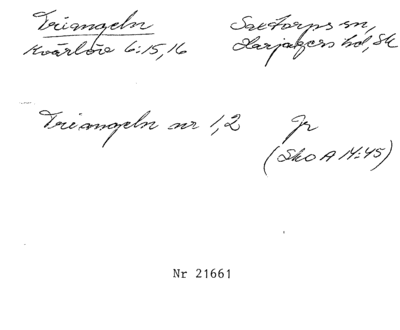 Triangeln
Kvärlöv 6:15,16
Saxtorps sn,
Harjagers hd, Sk
Triangeln nr 1,2 Jr
(Sko A 14:45)
Nr 21661